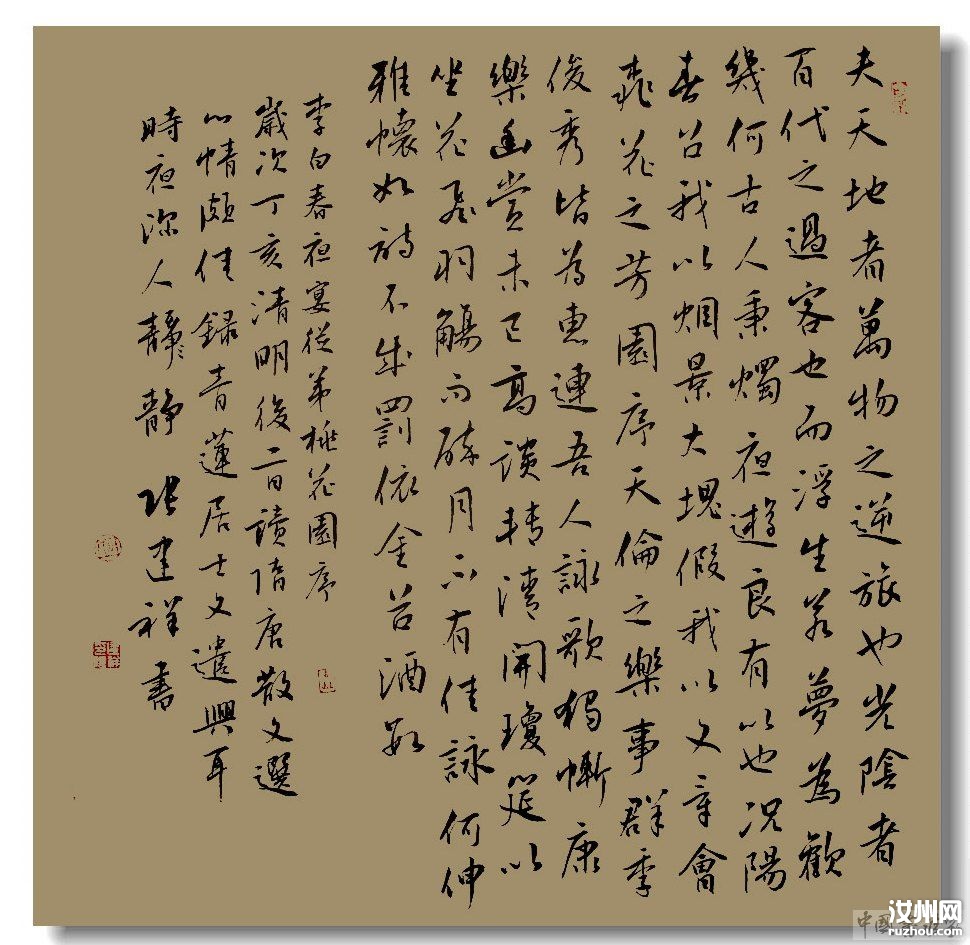 夫天地者萬物之逆旅也光陰者
百代之過客也而浮生若夢為歡
幾何古人秉燭夜遊良有以也况陽
春召我以烟景大塊假我以文章會
桃花之芳園序天倫之樂事群季
俊秀皆為惠連吾人詠歌獨慚康
樂幽賞未已高談轉清開瓊筵以
坐花飛羽觴而醉月不有佳詠何伸
雅懷如詩不成罰依金谷酒數
李白春夜宴從弟桃花園序
歲次丁亥清明後二日讀隋唐散文選
心情頗佳録青蓮居士文遣興耳
時夜深人靜靜 张建祥書
汝州网
ruzhou.com